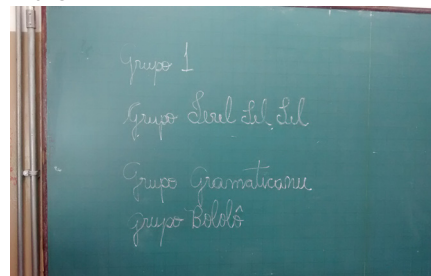 grupo 1
Grupo Lerel Lel Lel
Grupo Gramaticanu
grupo Bololô